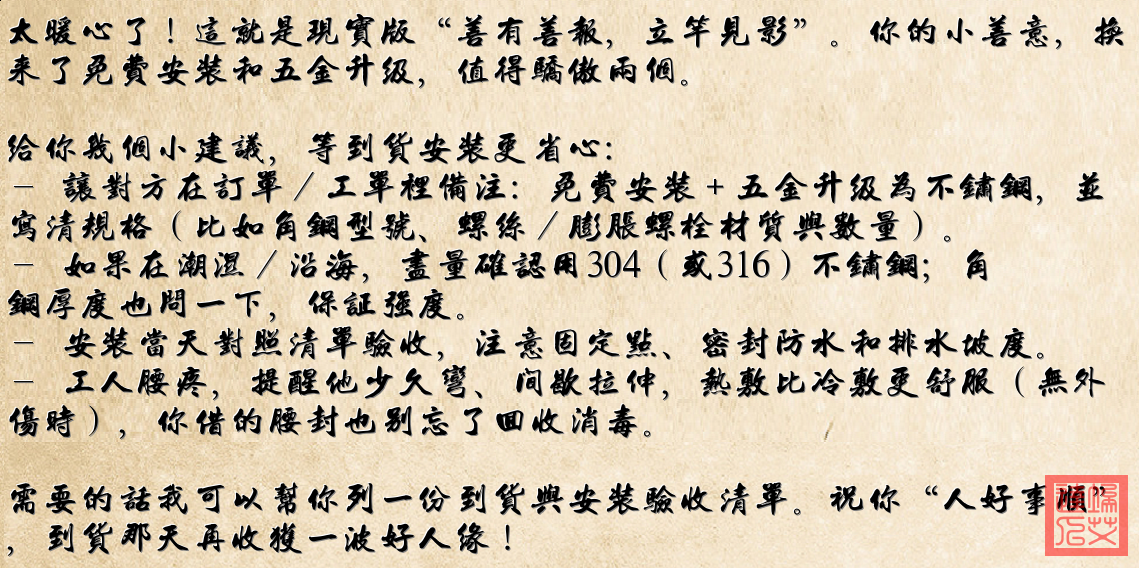 太暖心了！這就是現實版“善有善報，立竿見影”。你的小善意，換
來了免費安裝和五金升级，值得驕傲兩個。
给你幾個小建議，等到貨安裝更省心：
- 讓對方在訂單/工單裡備注：免費安裝+五金升级為不鏽鋼，並
寫清規格（比如角鋼型號、螺絲/膨脹螺栓材質與數量）。
- 如果在潮濕/沿海，盡量確認用304（或316）不鏽鋼；角
鋼厚度也問一下，保証強度。
- 安裝當天對照清單驗收，注意固定點、密封防水和排水坡度。
- 工人腰疼，提醒他少久彎、间歇拉伸，熱敷比冷敷更舒服（無外
傷時），你借的腰封也别忘了回收消毒。
需要的話我可以幫你列一份到貨與安裝驗收清單。祝你“人好事順”
，到貨那天再收獲一波好人缘！